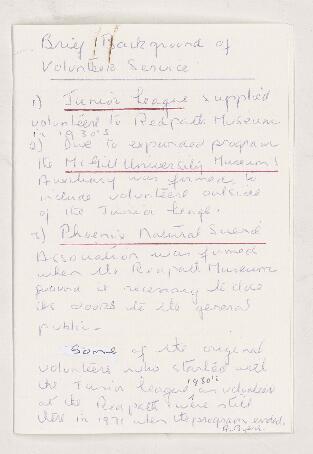 Brief Background of
Volunteer Service
1) Junior League supplied
volunteers to Redpath Museum
in 1930's
2) Due to expanded program
the McGill University Museums
Auxiliary was formed, to
include volunteers outside
of the Junior League.
3) Phoenix Natural Science
Association was formed
when the Redpath Museum
found it necessary to close
its doors to the general
public.
Some of the original
volunteers who started with
the Junior League 1930's as volunteers
at the Redpath were still
there in 1971 when the program ended.